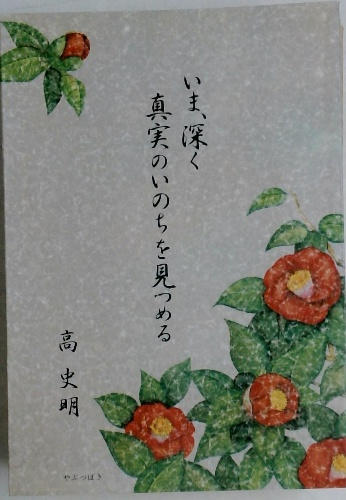 いま、深く
真実のいのちを見つめる
高史明
やぶつばき